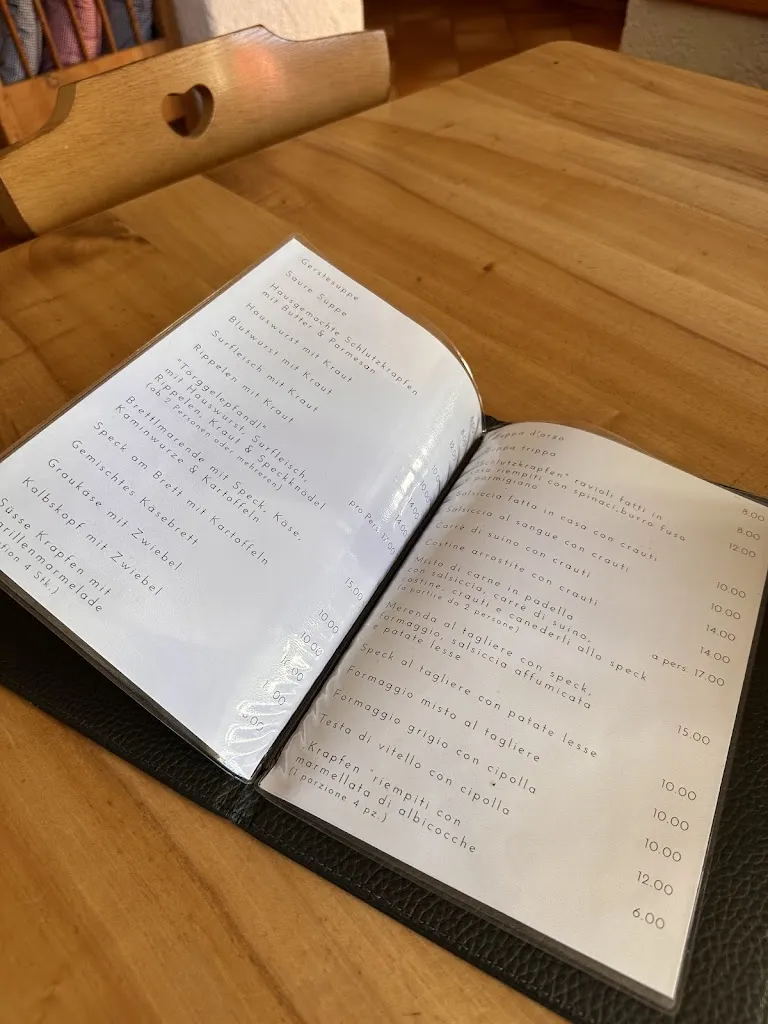 Gerstesuppe
Saure Suppe
Hausgemachte Schlutzkrapfen
mit Butter & Parmesan
Hauswurst mit Kraut
Blutwurst mit Kraut
Surfleisch mit Kraut
Rippelen mit Kraut
"Törggelepfandl"
mit Hauswurst, Surfleisch,
Rippelen, Kraut & Speckknödel
(ab 2 Personen oder mehreren) pro Pers. 17.00
Brettlmarende mit Speck, Käse,
Kaminwurze & Kartoffeln 15.00
Speck am Brett mit Kartoffeln 10.00
Gemischtes Käsebrett 10.00
Graukäse mit Zwiebel
Kalbskopf mit Zwiebel
Süsse Krapfen mit
arillenmarmelade
tion 4 Stk.)
Zuppa d'orzo 8.00
Zuppa trippa 8.00
"Schlutzkrapfen" ravioli fatti in
riempiti con spinaci,burro fuso
parmigiano 12.00
Salsiccia fatta in casa con crauti 10.00
Salsiccia al sangue con crauti 10.00
Carrè di suino con crauti 14.00
Costine arrostite con crauti 14.00
Misto di carne in padella
con salsiccia, carrè di suino,
costine, crauti e canederli allo speck
(a partire da 2 persone) a pers. 17.00
Merenda al tagliere con speck,
formaggio, salsiccia affumicata
e patate lesse 15.00
Speck al tagliere con patate lesse 10.00
Formaggio misto al tagliere 10.00
Formaggio grigio con cipolla 10.00
Testa di vitello con cipolla 12.00
Krapfen "riempiti con
marmellata di albicocche
(1 porzione 4 pz.) 6.00